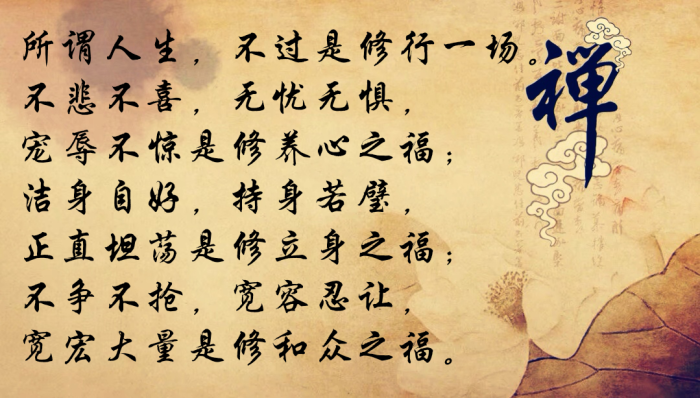 所谓人生，不过是修行一场。
不悲不喜，无忧无惧，
宠辱不惊是修养心之福；
洁身自好，持身若璧，
正直坦荡是修立身之福；
不争不抢，宽容忍让，
宽宏大量是修和众之福。
禅